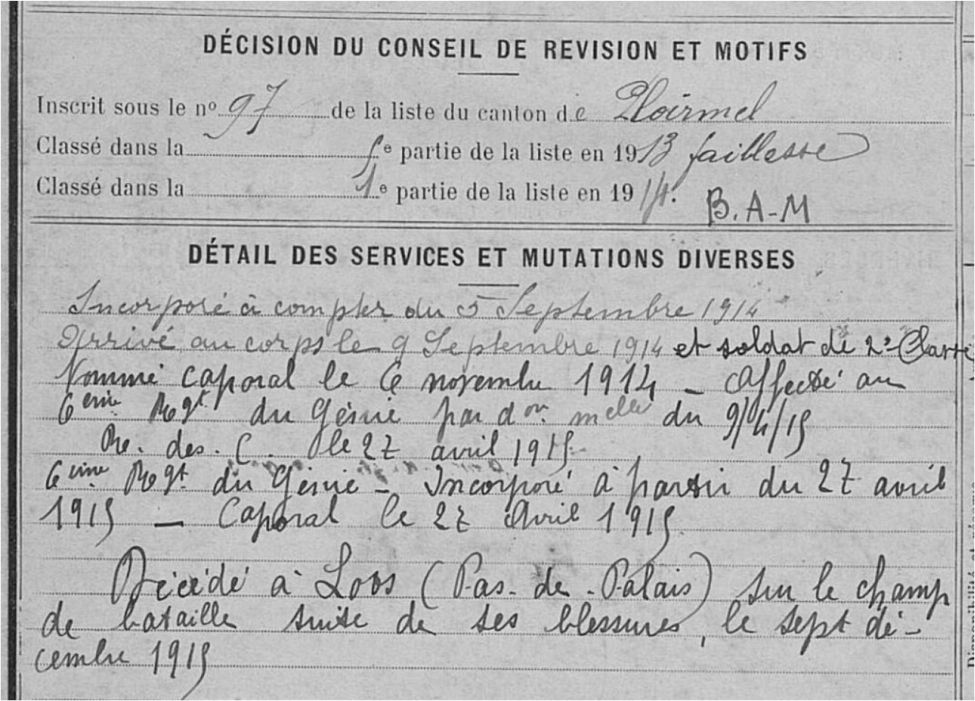 DÉCISION DU CONSEIL DE REVISION ET MOTIFS
Inscrit sous le nº 97 de la liste du canton de Ploërmel
Classé dans la 5e partie de la liste en 1913 faiblesse
Classé dans la 1e partie de la liste en 1914.
B.A-M
DÉTAIL DES SERVICES ET MUTATIONS DIVERSES
Incorporé à compter du 5 Septembre 1914
Arrivé au corps le 9 Septembre 1914 et soldat de 2e Classe
Nommé caporal le 6 novembre 1914 - Affecté au
6eme Regt du Génie par don melle du 9/4/15
Re. des. C. le 27 avril 1915.
6eme Regt du Génie - Incorporé à partir du 27 avril
1915 - Caporal le 27 Avril 1915
Décédé à Loos (Pas-de-Palais) sur le champ
de bataille suite de ses blessures, le sept dé-
cembre 1915